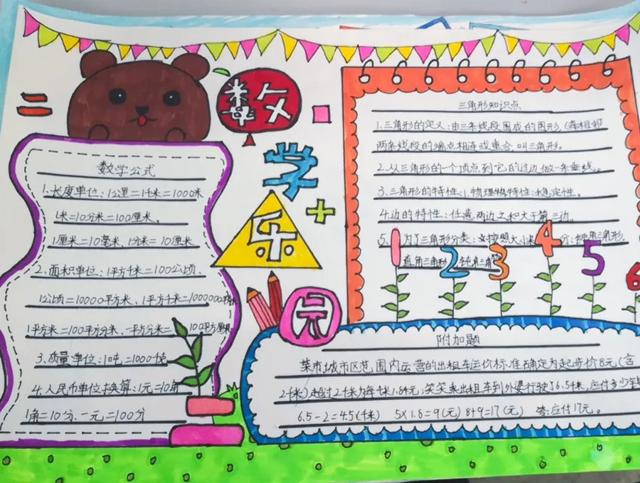 数学乐园
数学公式
1.长度单位:1公里=1千米=1000米
1米=10分米=100厘米。
1厘米=10毫米、1分米=10厘米
2.面积单位:1平方千米=100公顷
1公顷=10000平方米、1平方千米=1000000
1平方米=100平方分米、一平方分米=100平方厘米
3.质量单位:1吨=1000千克
4.人民币单位换算:1元=10角
1角=10分、一元=100分
三角形知识点
1.三角形的定义:由三条线段围成的图形(每相邻
两条线段的端点相连或重合)叫三角形。
2.从三角形的一个顶点到它的对边做一条垂线。
3.三角形的特性:1.物理特性:稳定性。
4.边的特性:任意两边之和大于第三边。
5. 三角形分类:按照
直角三角形
1 2 3 4 5 6
附加题
某市城市区范围内运营的出租车运价标准确定为起步价8元(含
2千米)超过2千米每千米1.6元,笑笑乘出租车到外婆行驶16.5千米,应付多少
6.5-2=4.5(千米) 5×1.6=9(元) 8+9=17(元) 答:应付17元。